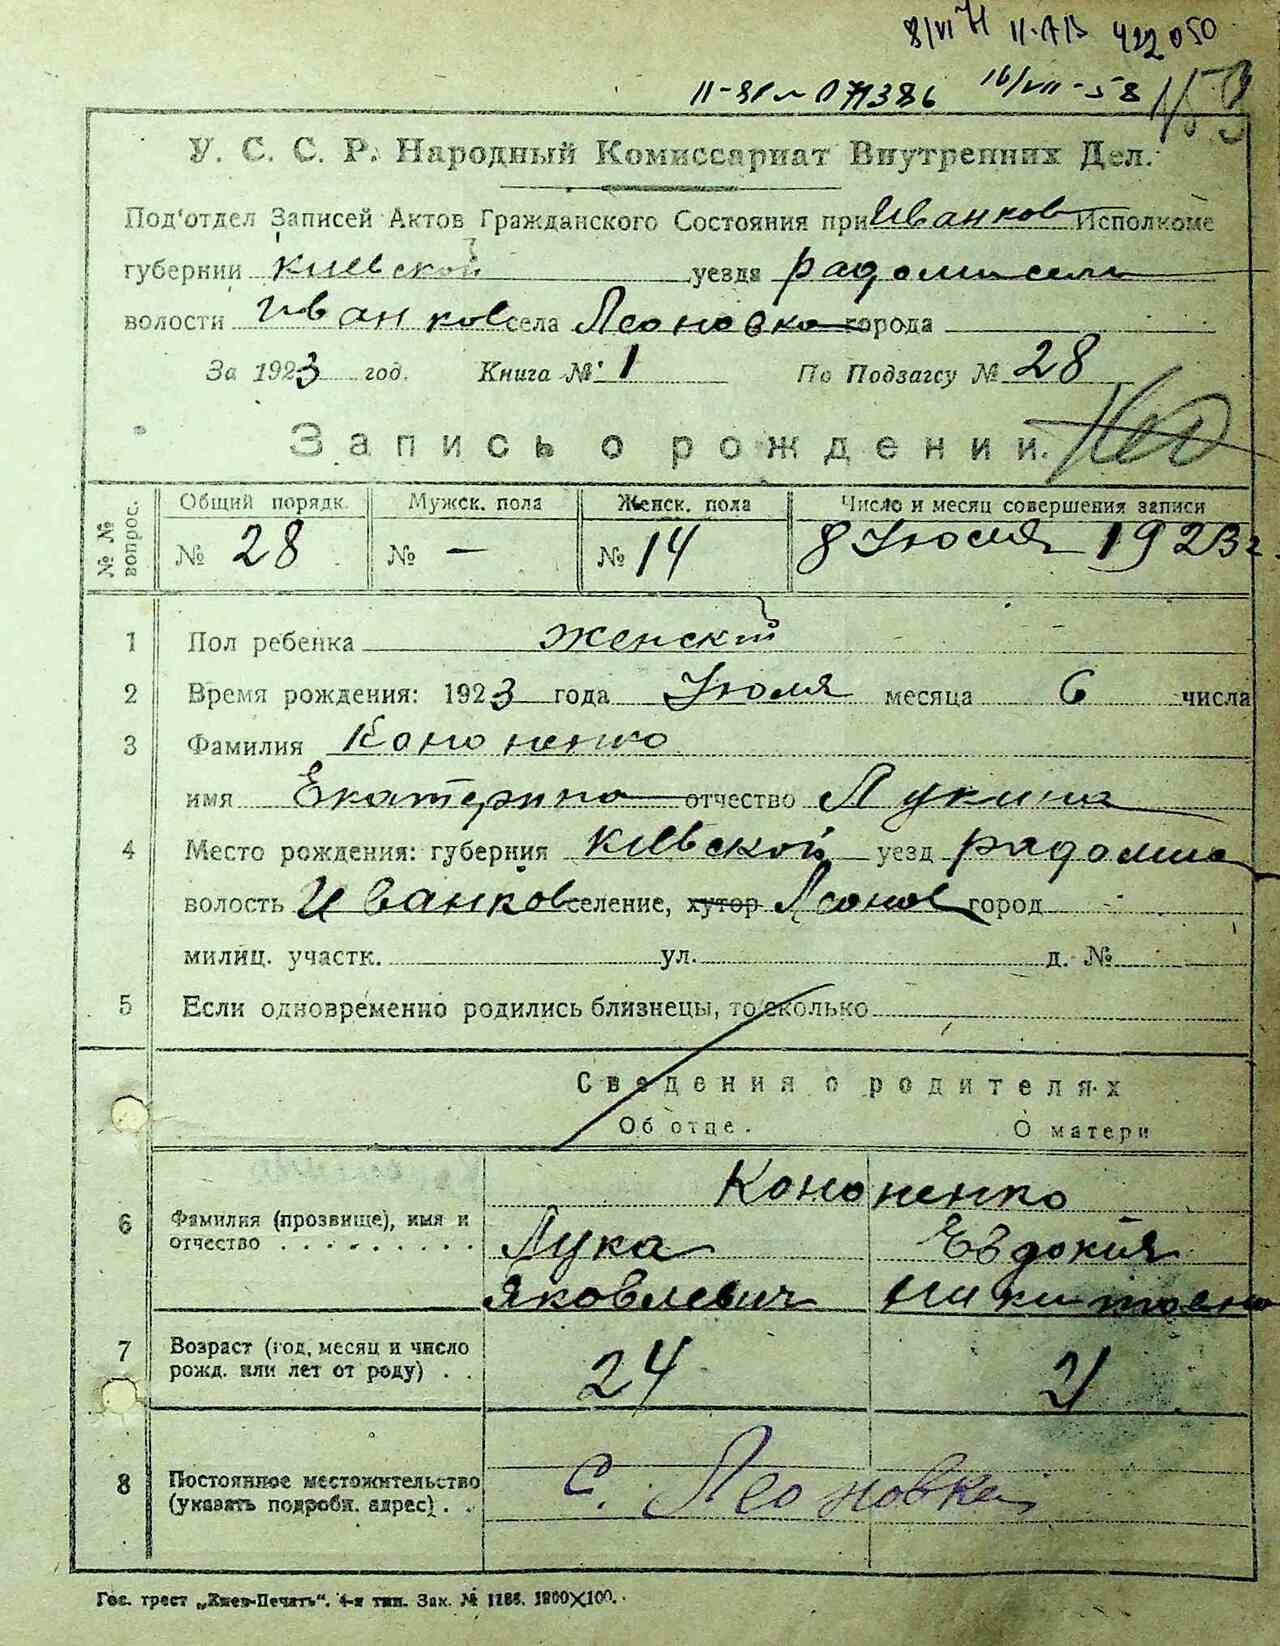 8/VI 71 II-АВ 422050
16/VII-58
У. С. С. Р. Народный Комиссариат Внутренних Дел.
Под'отдел Записей Актов Гражданского Состояния при Иванков Исполкоме
губернии Киевской уезда Радомисель
волости Иванков села Леоновка города
За 1923 год. Книга № 1 По Подзагсу № 28
Запись о рождении.
№ № вопрос. Общий порядк. Мужск. пола Женск. пола Число и месяц совершения записи
№ 28 № — № 14 8 Июля 1923 г.
1 Пол ребенка женский
2 Время рождения: 1923 года Июля месяца 6 числа
3 Фамилия Кононенко
имя Екатерина отчество Лукина
4 Место рождения: губерния Киевской уезд Радомис
волость Иванков селение, хутор Леонов город
милиц. участк. ул. д. №
5 Если одновременно родились близнецы, то сколько
Сведения о родителях
Об отце. О матери
Кононенко
6 Фамилия (прозвище), имя и Лука Евдокия
отчество . . . . . . . . . Яковлевич Никитовна
7 Возраст (год, месяц и число
рожд. или лет от роду) . . 24 21
8 Постоянное местожительство С. Леоновка
(указать подробн. адрес) . .
Гос. трест „Киев-Печать“. 4-я тип. Зак. № 1186. 1800×100.